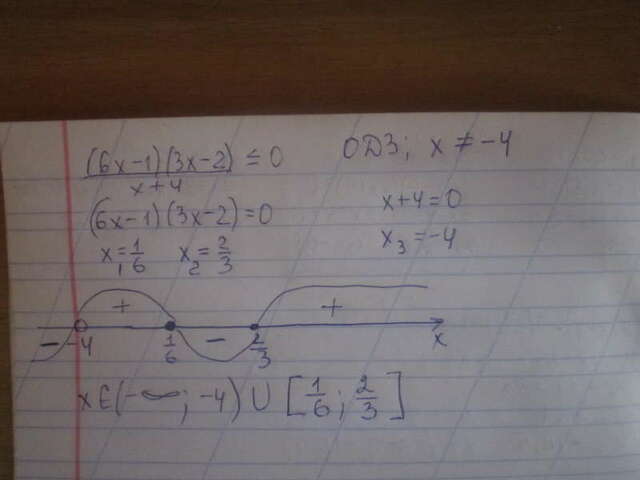 (6x-1)(3x-2)/x+4 ≤ 0 ОДЗ; x ≠ -4
(6x-1)(3x-2)=0 x+4=0
x₁=1/6 x₂=2/3 x₃=-4
+ +
- -4 1/6 - 2/3 x
x∈(-∞; -4) ∪ [1/6; 2/3]